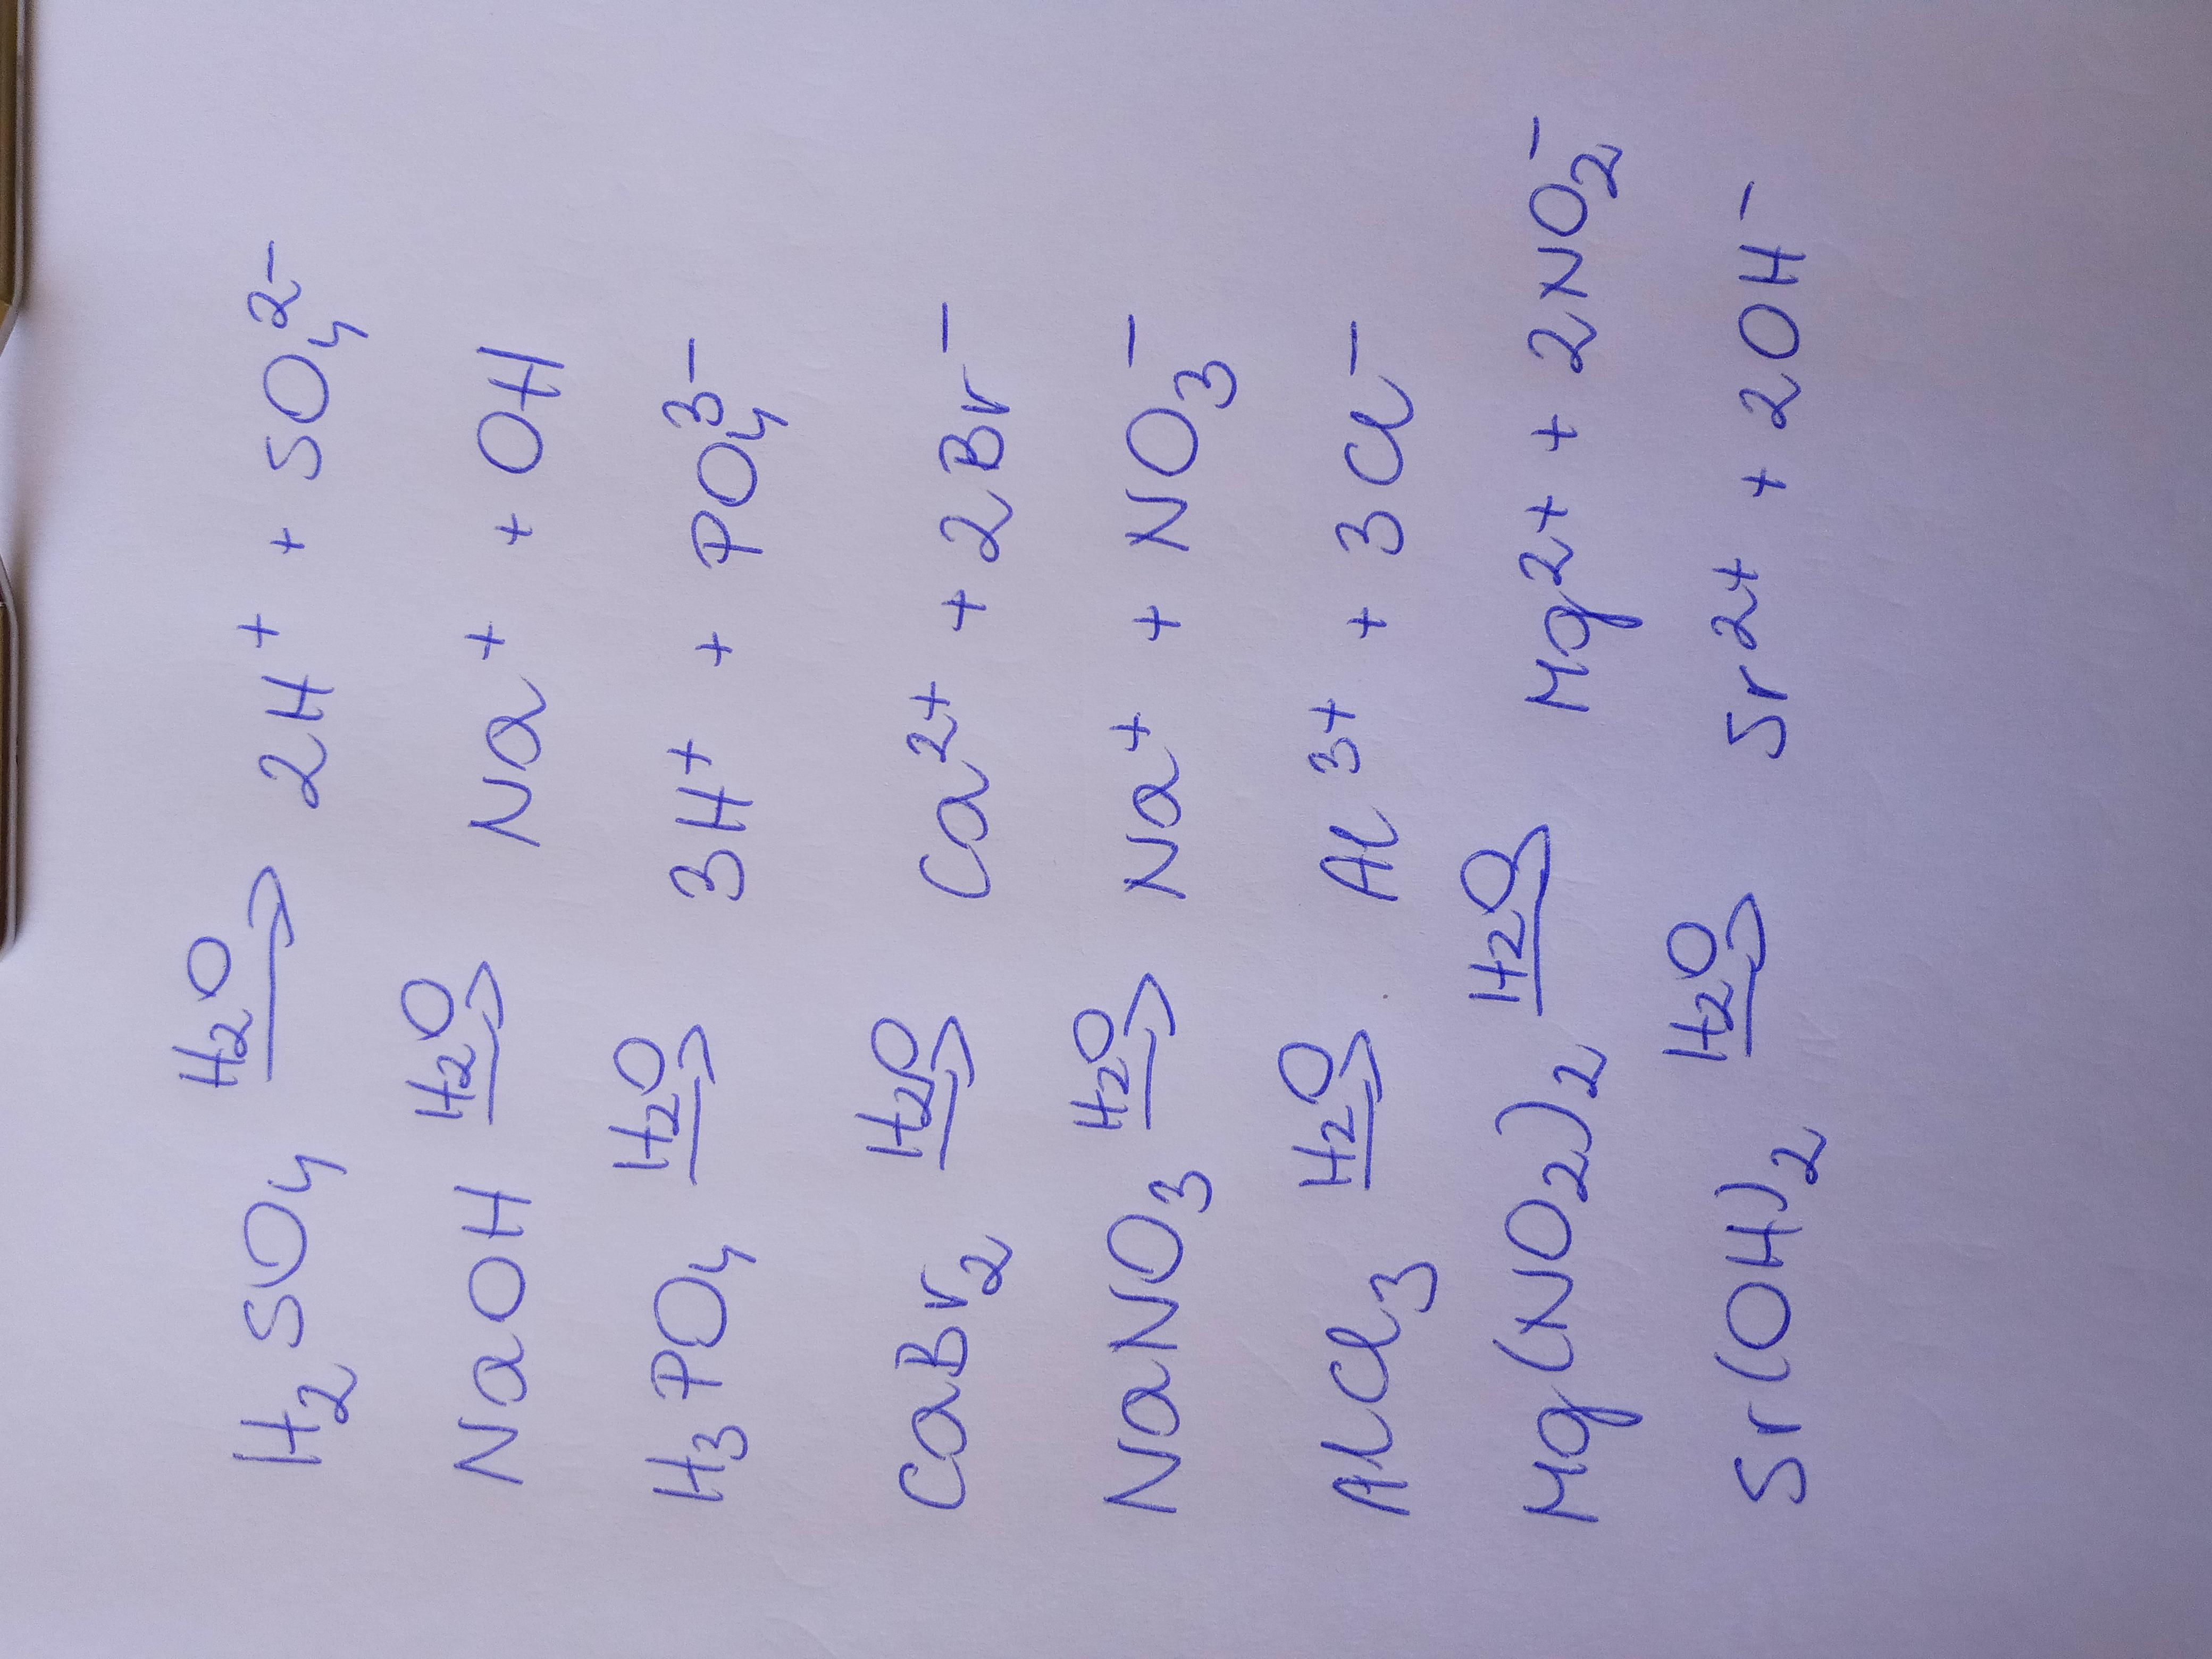 H₂SO₄ H₂O→ 2H⁺ + SO₄²⁻
NaOH H₂O→ Na⁺ + OH
H₃PO₄ H₂O→ 3H⁺ + PO₄³⁻
CaBr₂ H₂O→ Ca²⁺ + 2Br⁻
NaNO₃ H₂O→ Na⁺ + NO₃⁻
AlCl₃ H₂O→ Al³⁺ + 3Cl⁻
Mg(NO₂)₂ H₂O→ Mg²⁺ + 2NO₂⁻
Sr(OH)₂ H₂O→ Sr²⁺ + 2OH⁻